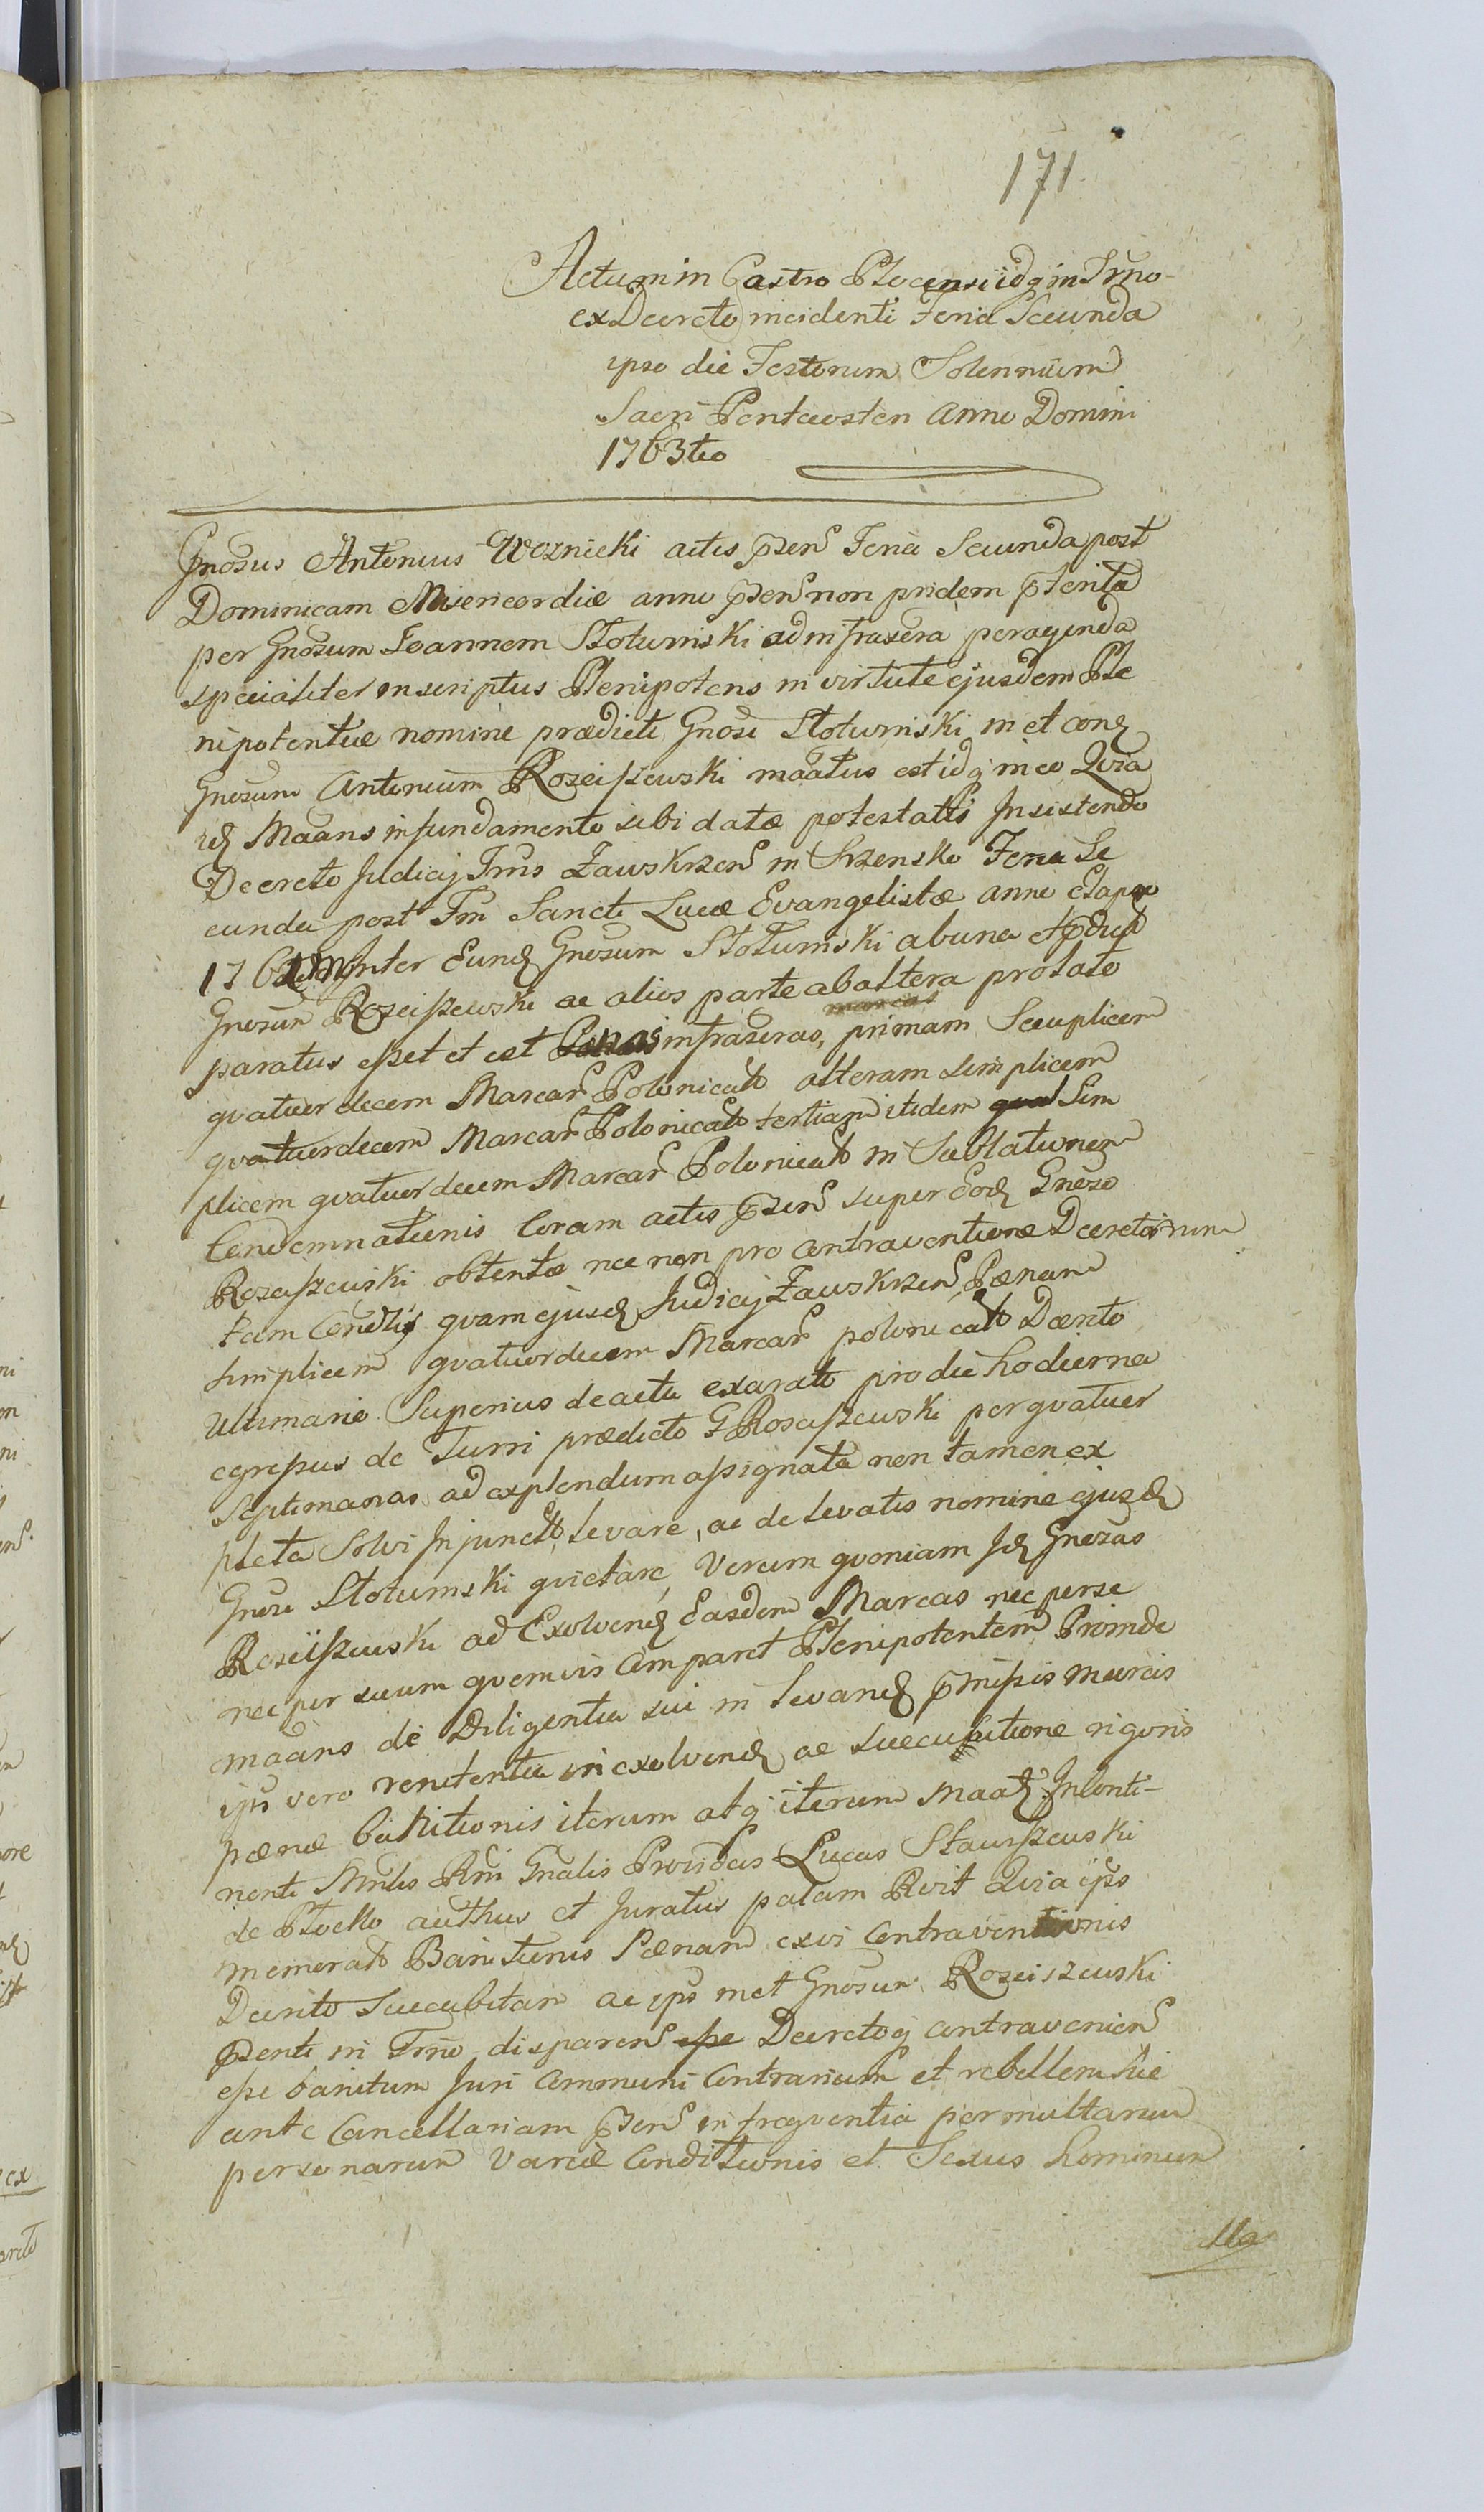 171.
Actum in Castro Plocensi idq in Trno
ex Decreto incidenti Feria Secunda
ipso die Festorum Solennium
Sacri Pentecosten Anno Domini
1763tio
Gnosus Antonius Woznicki actis pñsen Feria Secunda post
Dominicam Misericordiæ anno pñsen non pridem pterita
per Gnosum Joannem Stotumski ad infrascra peragenda
specialiter inscriptus Plenipotens in virtute ejusdem Ple
nipotentiæ nomine prædicti Gnosi Stotumski in et con
Gnosum Antonium Rosciszewski maatus est idq in eo Qvia
id Maans in fundamento sibi datæ potestatis Insistendo
Decreto Judicij Trris Zawskrzen in Szrensko Feria Se
cunda post Fm Sancti Lucæ Evangelistæ anno Elapso
inter Eund Gnosum Stotumski ab una et
Gnosum Rosciszewski ac alios parte ab altera prolato
paratus esset et est infrascras, marcas primam Sexuplicem
qvatuordecem Marcar Polonical alteram simplicem
qvatuordecem Marcar Polonical tertiam itidem Sim
plicem qvatuordecem Marcar Polonical in Sublationem
Condemnationis Coram actis pñsen super Eod Gnoso
Rosciszewski obtentæ nec non pro contraventione Decretorum
tam quam ejusd Judicij Zawskrzen, Pænam
simplicem qvatuordecem Marcar polonical Decreto
Ultimarie Superius de actu exarato pro die hodierna
egressus de Turri prædicto G Rosciszewski per qvatuor
Septimanas ad explendum assignata non tamen ex
pleta Solvi Injunct levare, ac de levatis nomine ejusd
Gnosi Stotumski qvietare, Verum qvoniam Id Gnosus
Rosciszewski ad Exolvend Easdem Marcas nec per se
nec per suum qvemvis Comparet Plenipotentem Proinde
maans de Diligentia sui in Levand pmissis marcis
ips vero renitentia in exolvend ac succubitione rigoris
pænæ banitionis iterum atq iterum Maat Inconti-
nenti Mnlis Rni Gnalis Providus Lucas Staniszewski
de Plocko authus et Juratus palam Rvit Qvia ips
memorat Banitionis Pænam ex vi contraventionis
Decreto Succubitam ac ips met Gnosum Rosciszewski
psenti in Trno disparen esse Decretoq contravenien
esse banitum Juri Communi Contrarium et rebellem hic
ante Cancellariam pñsen in freqventia permultarum
personarum Variæ Conditionis et Sexus hominum
illa